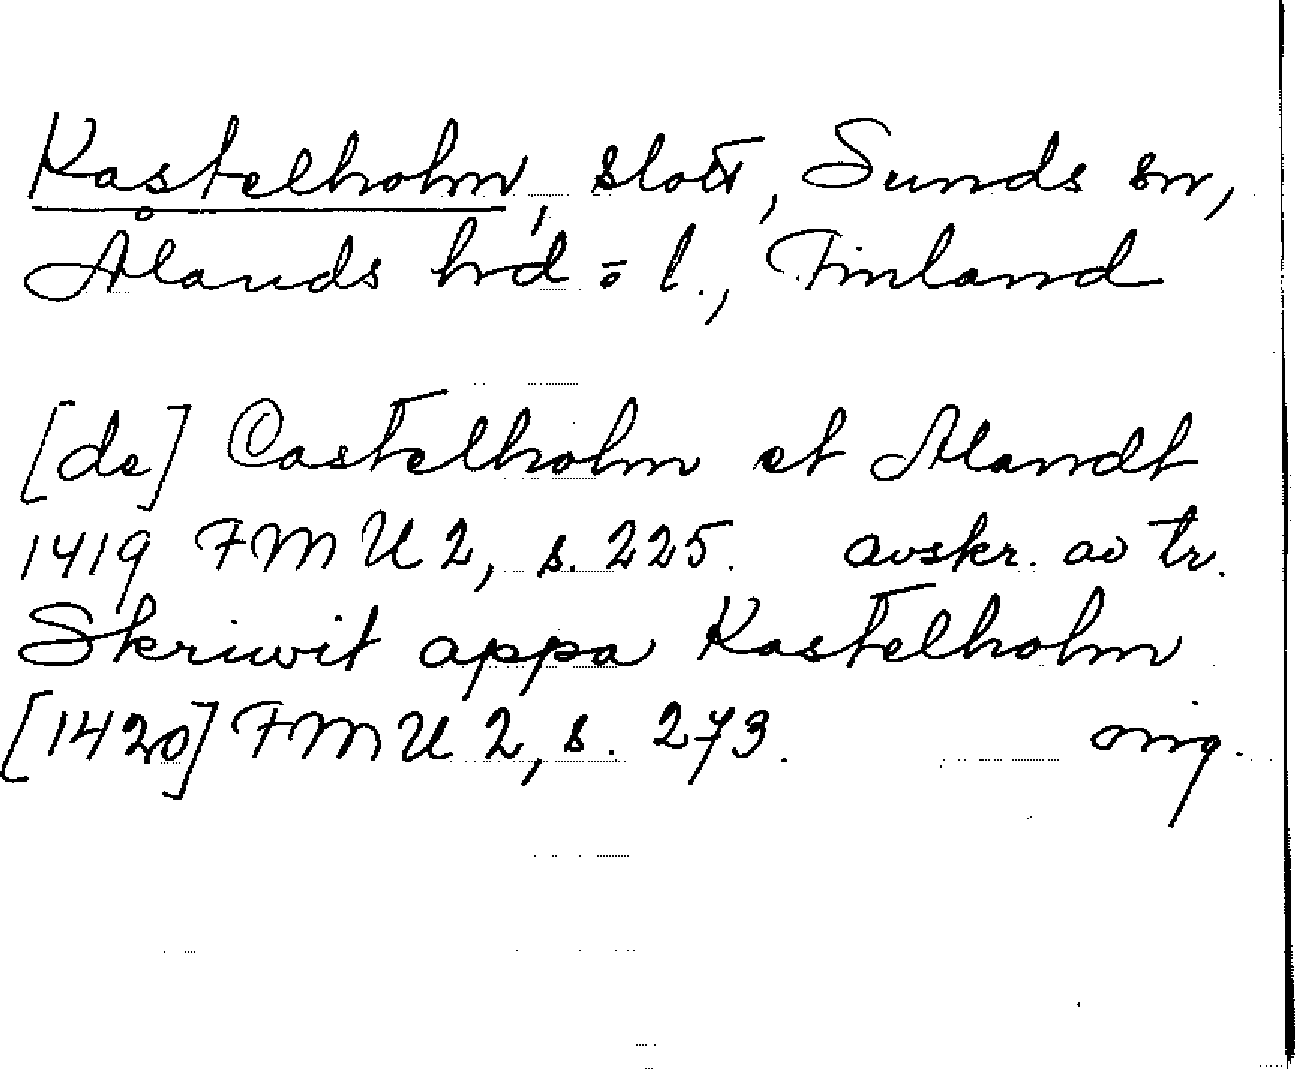 Kastelholm, slott, Sunds sn,
Ålands hd = l., Finland
[de] Castelholm et Alandt
1419 FMU 2, s. 225. avskr. av tr.
Skriwit appa Kastelholm
[1420] FMU 2, s. 273. orig.